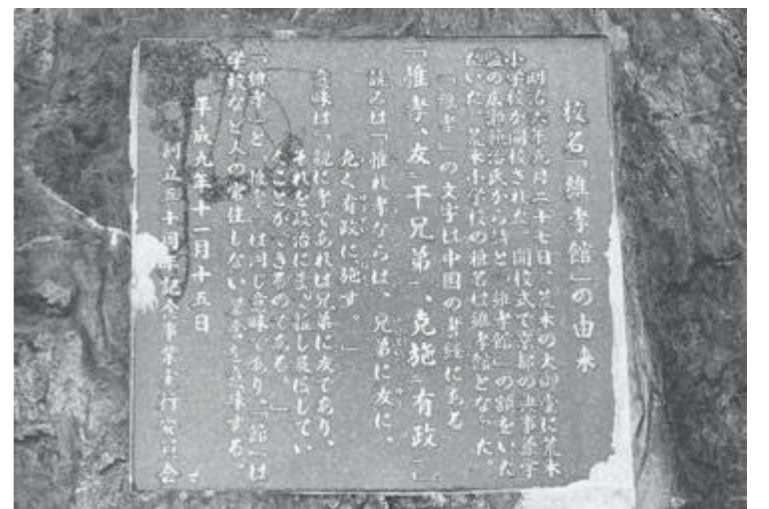 校名「維孝館」の由来
明治六年九月二十七日、荒木の大御堂に荒木
小学校が開校された。開校式で京都の
から「維孝館」の額をいた
だいた。荒木小学校の雅名は維孝館となった。
「惟孝」の文字は中国の書経にある
「惟孝、友』于兄弟』、克施』有政』」
読みは「惟れ孝ならば、兄弟に友に、
克く有政に施す。」
意味は、親に孝であれば兄弟に友であり、
それを政治にまで推し及ぼしてい
くことができるのである。」
「維孝」と「惟孝」は同じ意味であり、「館」は
学校など人の常住しない建物を意味する。
平成九年十一月十五日
創立五十周年記念事業実行委員会